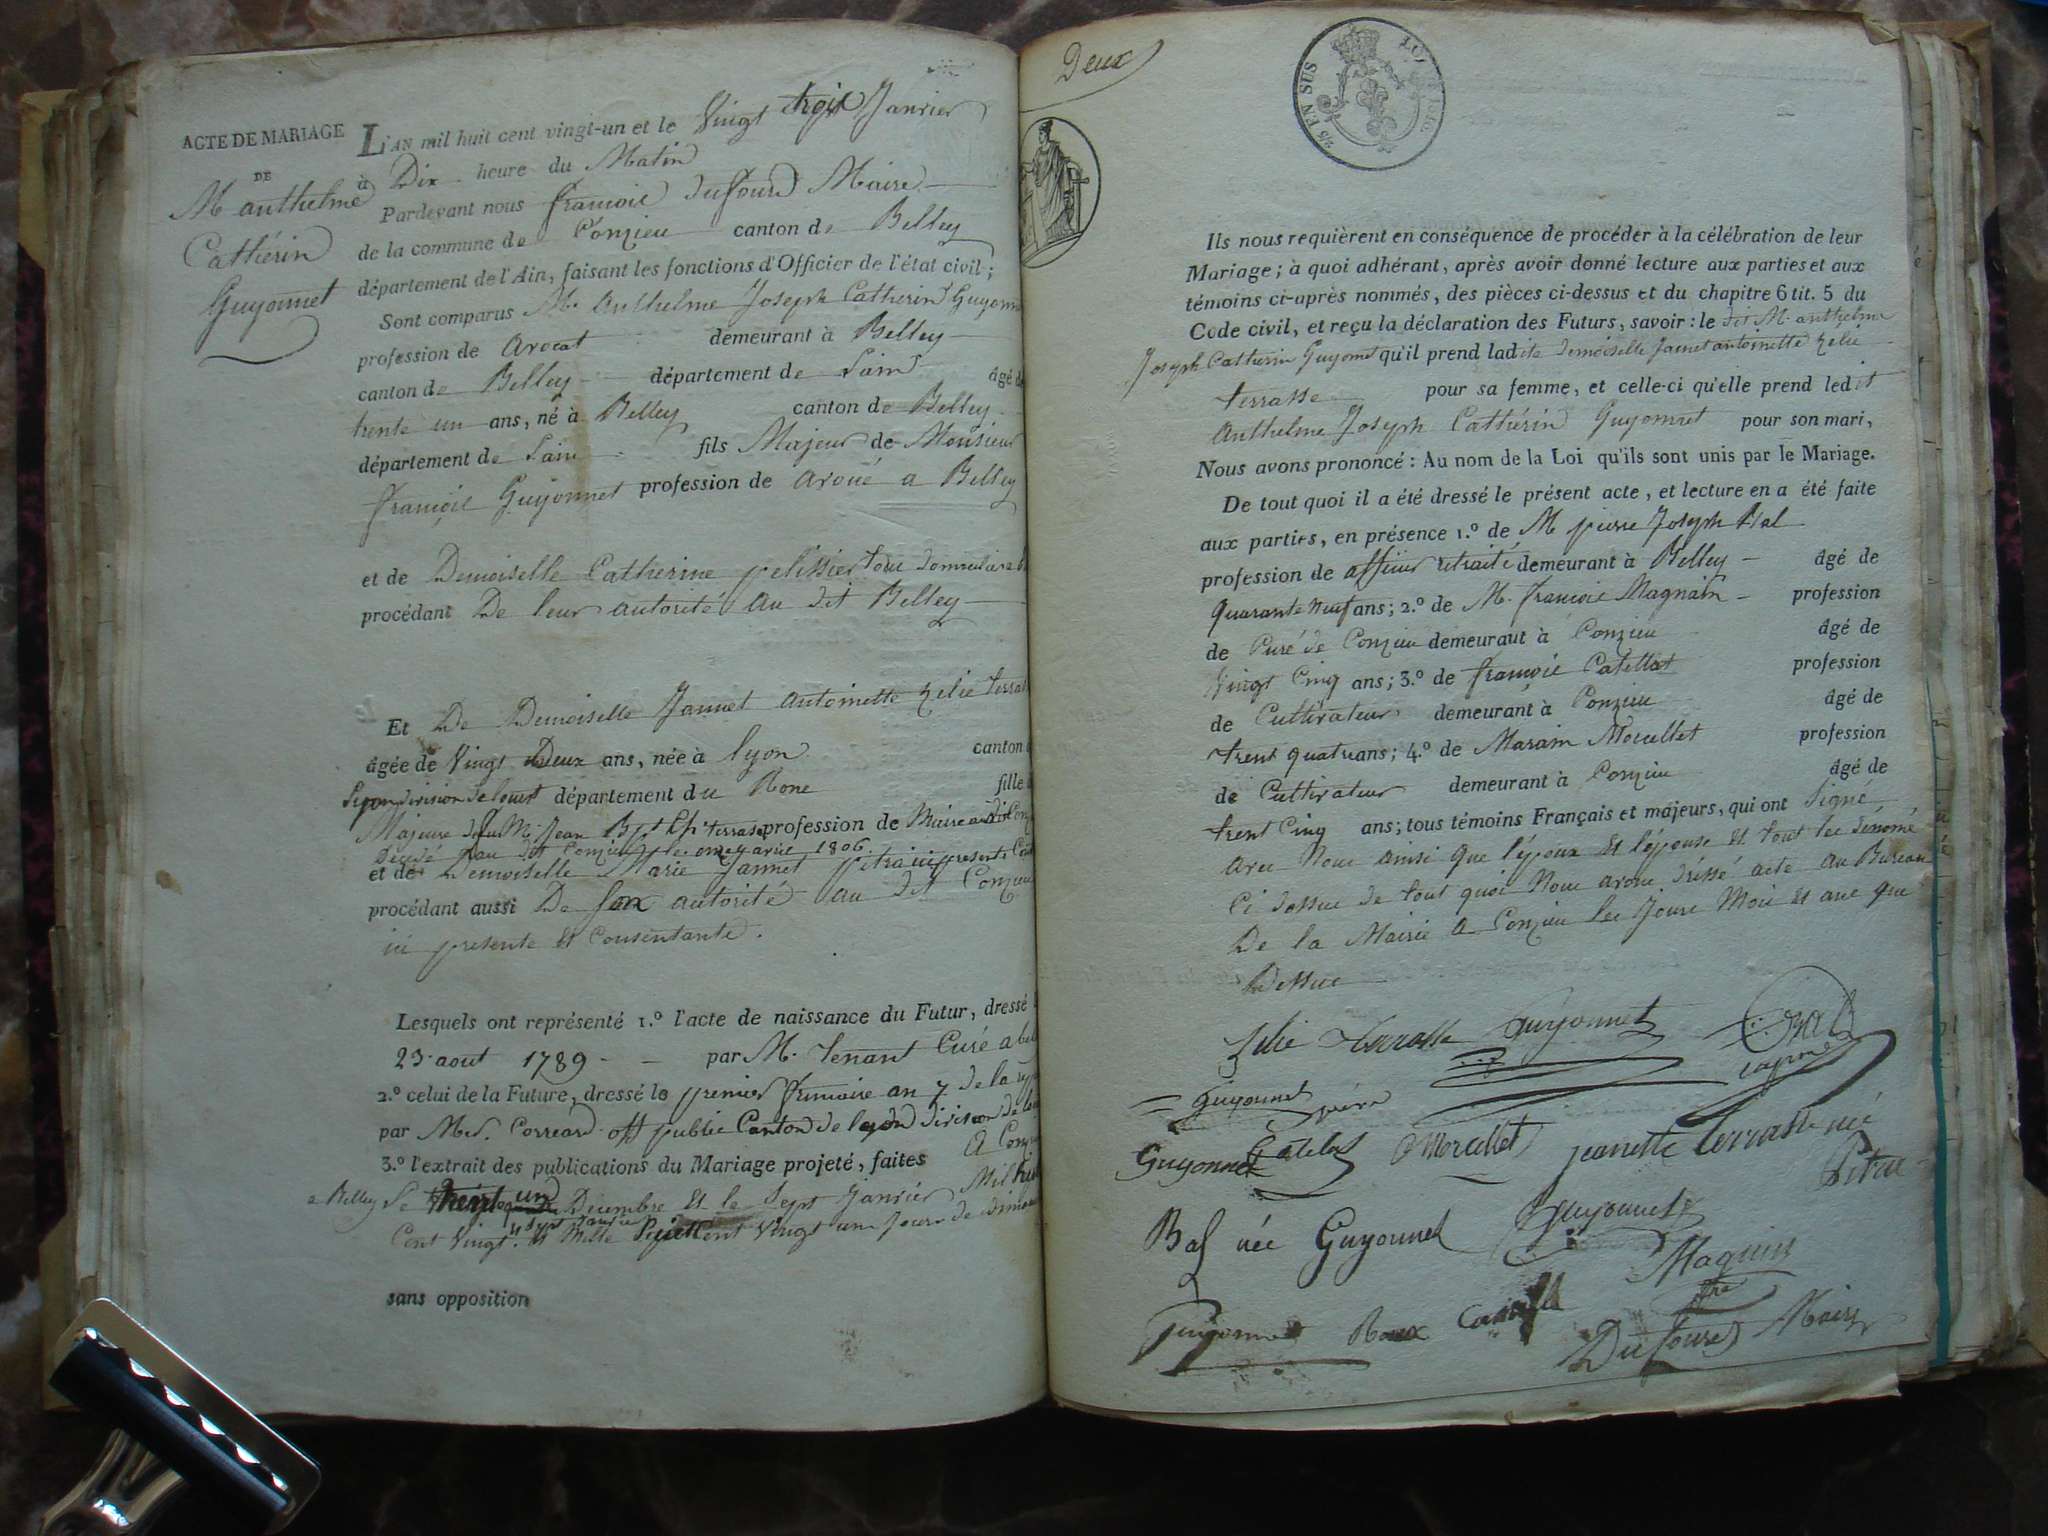 ACTE DE MARIAGE
DE
M anthelme
Cathérin
Guyonnet
L'AN mil huit cent vingt-un et le Vingt trois Janvier
à Dix heure du Matin
Pardevant nous françois dufourd Maire
de la commune de Conzieu canton de Belley
département de l'Ain, faisant les fonctions d'Officier de l'état civil;
Sont comparus M. Anthelme Joseph Catherin Guyonn
profession de avocat demeurant à Belley
canton de Belley département de Lain âgé de
trente un ans, né à Belley canton de Belley
département de Lain fils Majeur de Monsieur
françois Guyonnet profession de avoué a Belley
et de Demoiselle Catherine pelissier
procédant De leur autorité au dit Belley
Et De Demoiselle Jannet antoinette zelie terras
âgée de Vingt Deux ans, née à lyon canton
division de louest département du Rone fille
Majeure M. Jean Bpt terrasse profession de Maire
Décédé au dit Conzieu le onze 1806
et de Demoiselle Marie Jannet presente
procédant aussi De son autorité au dit Conzieu
ici presente et Consentante.
Lesquels ont représenté 1.º l'acte de naissance du Futur, dressé
23 aout 1789 par M. tenant Curé a
2.º celui de la Future, dressé le premier frimaire an 7 de la
par Md. Correard off public Canton de lyon division de
3.º l'extrait des publications du Mariage projeté, faites a Conz
a Belley le un Decembre et le Sept Janvier Mil
Cent Vingt et Mille Cent Vingt un Jours de
sans opposition
Deux
25 EN SUS
LOI
Ils nous requièrent en conséquence de procéder à la célébration de leur
Mariage; à quoi adhérant, après avoir donné lecture aux parties et aux
témoins ci-après nommés, des pièces ci-dessus et du chapitre 6 tit. 5 du
Code civil, et reçu la déclaration des Futurs, savoir: le dit M. anthelme
Joseph Catherin Guyonnet qu'il prend ladite demoiselle Jannet antoinette zelie
terrasse pour sa femme, et celle-ci qu'elle prend ledit
Anthelme Joseph Cathérin Guyonnet pour son mari,
Nous avons prononcé: Au nom de la Loi qu'ils sont unis par le Mariage.
De tout quoi il a été dressé le présent acte, et lecture en a été faite
aux parties, en présence 1.º de M pierre Joseph
profession de officier retraité demeurant à Belley âgé de
quarante neuf ans; 2.º de M. françois Magnain profession
de Curé de Conzieu demeuraut à Conzieu âgé de
Vingt Cinq ans; 3.º de françois Catellot profession
de Cultivateur demeurant à Conzieu âgé de
trent quatre ans; 4.º de Marain Morcellet profession
de Cultivateur demeurant à Conzieu âgé de
trent Cinq ans; tous témoins Français et majeurs, qui ont Signé
avec Nous ainsi que l'époux et l'épouse et tout les dénomé
Ci dessus de tout quoi Nous avons dréssé acte au Bureau
De la Mairie a Conzieu les Jours Mois et ans que
Dessus
Zelie terrasse Guyonnet
Guyonnet père
Guyonnet Catelot Morcellet jeanette terrasse née
née Guyonnet Guyonnet
Magnin
Guyonnet Roux
Dufourd Maire